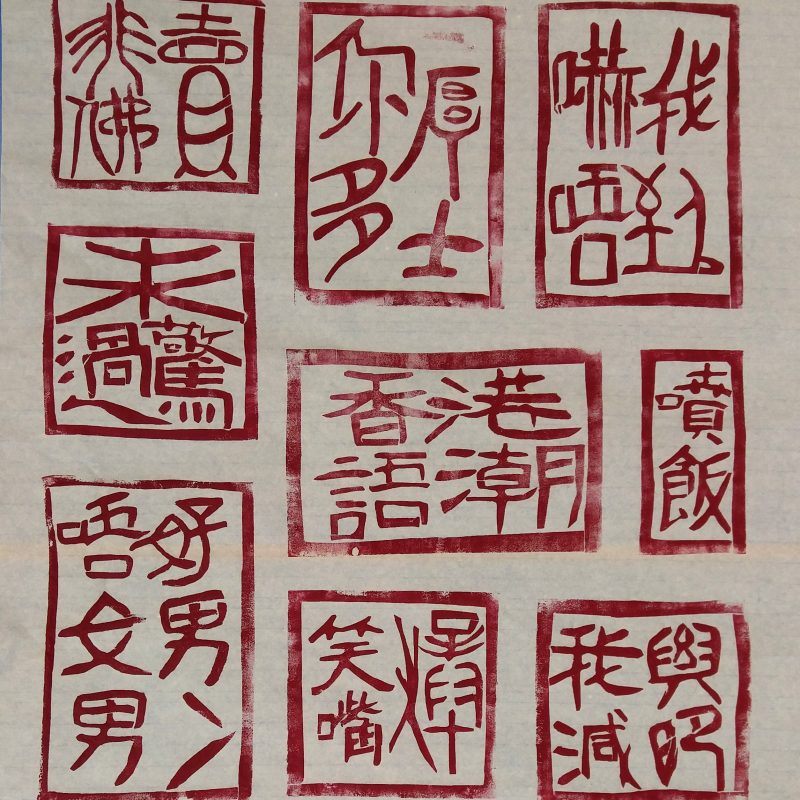 賣
飛佛
你厚
多士
嚇我
唔到
未
驚過
香港
潮語
噴
飯
唔好
女男
男
笑
嘴
我
減